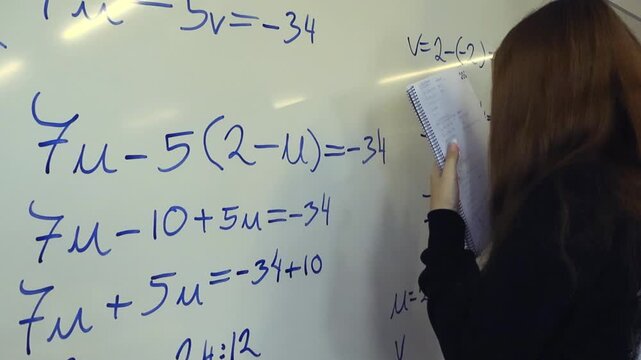 7u − 5v = −34
7u − 5(2−u) = −34
7u − 10 + 5u = −34
7u + 5u = −34 + 10
24:12
v = 2 − (−2)
u =
v